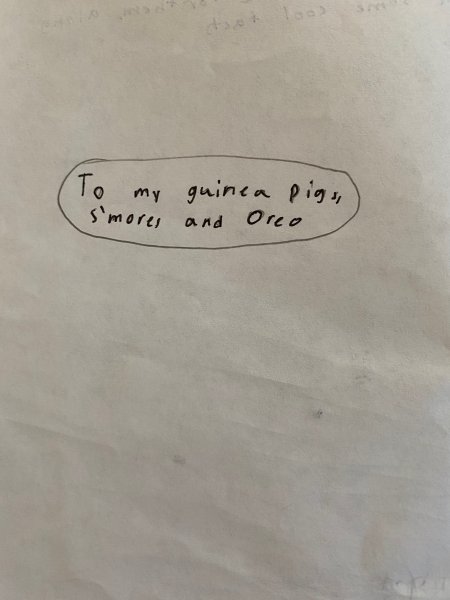 To my guinea pigs,
S'mores and Oreo